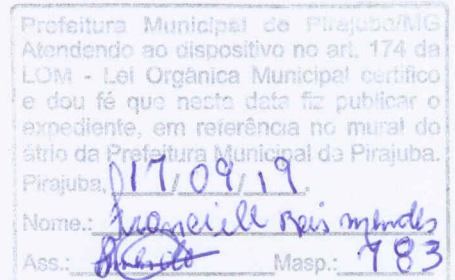 Prefeitura Municipal de Pirajuba/MG
Atendendo ao dispositivo no art. 174 da
LOM - Lei Orgânica Municipal certifico
e dou fé que nesta data fiz publicar o
expediente, em referência no mural do
átrio da Prefeitura Municipal de Pirajuba.
Pirajuba, 17/09/19.
Nome.: Reis Mendes
Ass.: Masp.: 783